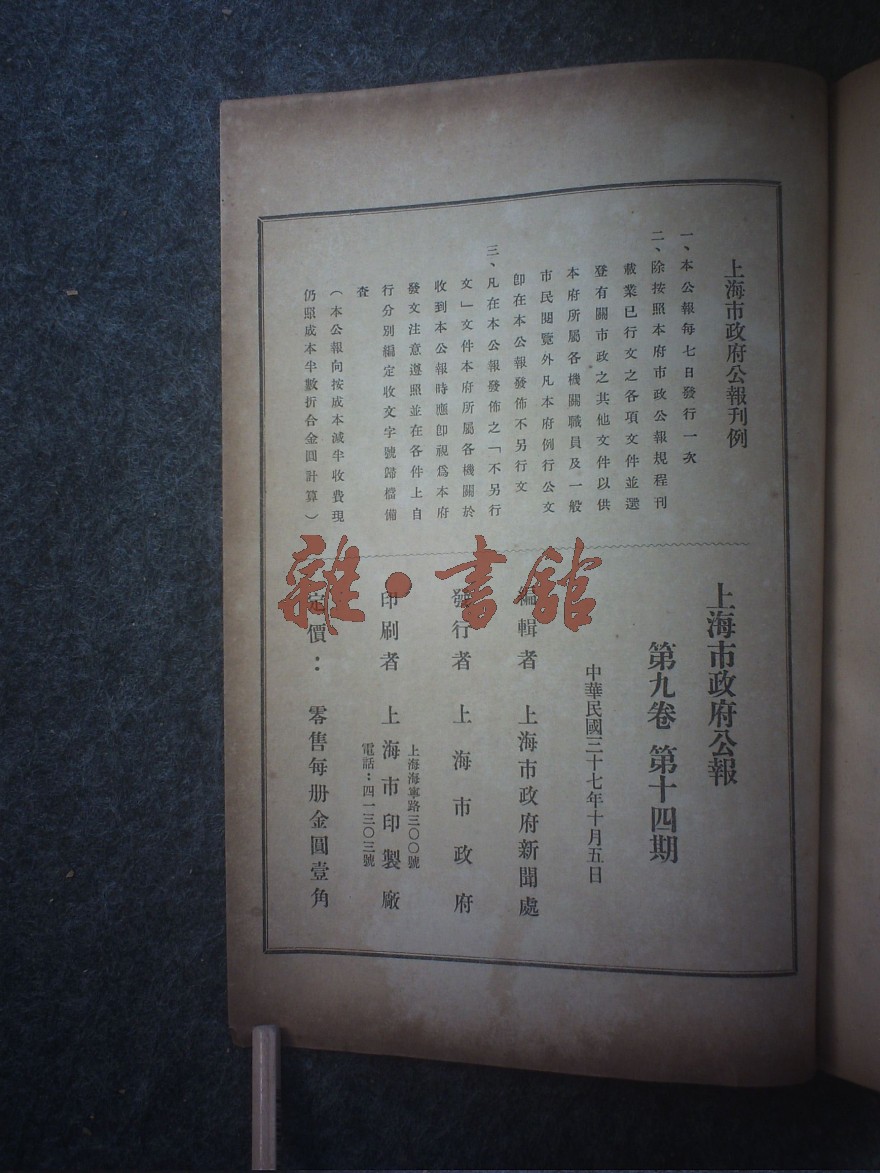 上海市政府公報刊例
一、本公報每七日發行一次
二、除按照本府市政公報規程刊
載業已行文之各項文件並選
登有關市政之其他文件以供
本府所屬各機關職員及一般
市民閱覽外凡本府例行公文
卽在本公報發佈不另行文
三、凡在本公報發佈之「不另行
文」文件本府所屬各機關於
收到本公報時應卽視爲本府
發文注意遵照並在各件上自
行分別編定收文字號歸檔備
查
（本公報向按成本減半收費現
仍照成本半數折合金圓計算）
上海市政府公報
第九卷 第十四期
中華民國三十七年十月五日
編輯者 上海市政府新聞處
發行者 上海市政府
印刷者 上海市印製廠
上海海寧路三〇〇號
電話：四一三〇三號
定價： 零售每册金圓壹角
雜·書館